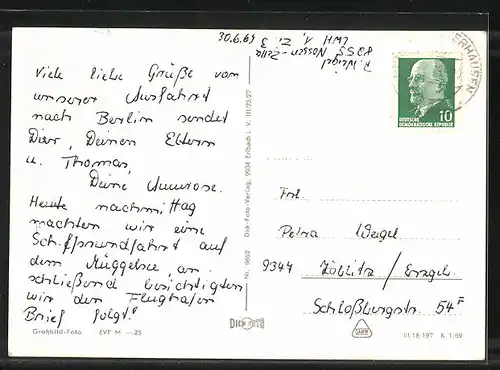 30.6.69
P. Weigel
8255 Nossen-Zella
LWH 1, Zi. 3
Viele liebe Grüße von
unserer Ausfahrt
nach Berlin sendet
Dir, Deinen Eltern
u. Thomas,
Deine Annerose.
Heute nachmittag
machten wir eine
Schiffsrundfahrt auf
dem Müggelsee, an-
schließend besichtigten
wir den Flughafen
Brief folgt!
Großbild-Foto EVP M —.25
Nr. 9652 Dick-Foto-Verlag, 9934 Erlbach i. V. III/23/27
DICK FOTO
ERHAUSEN
10
DEUTSCHE
DEMOKRATISCHE REPUBLIK
Frl.
Petra Weigel
9347 Zöblitz/Erzgeb.
Schloßbergstr. 54F
III.18.197 K 1/69